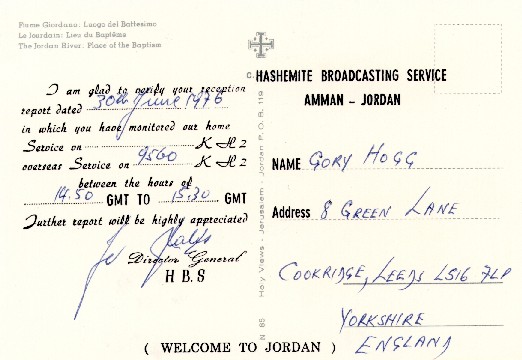 Fiume Giordano: Luogo del Battesimo
Le Jourdain: Lieu du Baptême
The Jordan River: Place of the Baptism
I am glad to notify your reception
report dated 30th June 1976
in which you have monitored our home
Service on KH2
overseas Service on 9560 KH2
between the hours of
14.50 GMT TO 15.30 GMT
Further report will be highly appreciated
Director General
H B S
( WELCOME TO JORDAN )
N 85 Holy Views - Jerusalem - Jordan P.O.B. 119
HASHEMITE BROADCASTING SERVICE
AMMAN - JORDAN
NAME GORY HOGG
Address 8 GREEN LANE
COOKRIDGE, LEEDS LS16 7LP
YORKSHIRE
ENGLAND